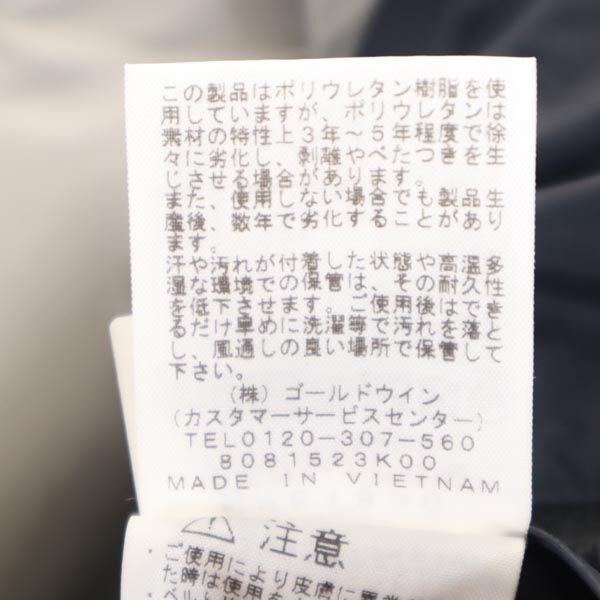 この製品はポリウレタン樹脂を使
用していますが、ポリウレタンは
素材の特性上３年～５年程度で徐
々に劣化し、剥離やべたつきを生
じさせる場合があります。
また、使用しない場合でも製品生
産後、数年で劣化することがあり
ます。
汗や汚れが付着した状態や高温多
湿な環境での保管は、その耐久性
を低下させます。ご使用後はでき
るだけ早めに洗濯等で汚れを落と
し、風通しの良い場所で保管して
下さい。
(株) ゴールドウイン
(カスタマーサービスセンター)
TEL0120-307-560
8081523K00
MADE IN VIETNAM
注意
・ご使用により皮膚に異常
た時は使用を
・ベルト